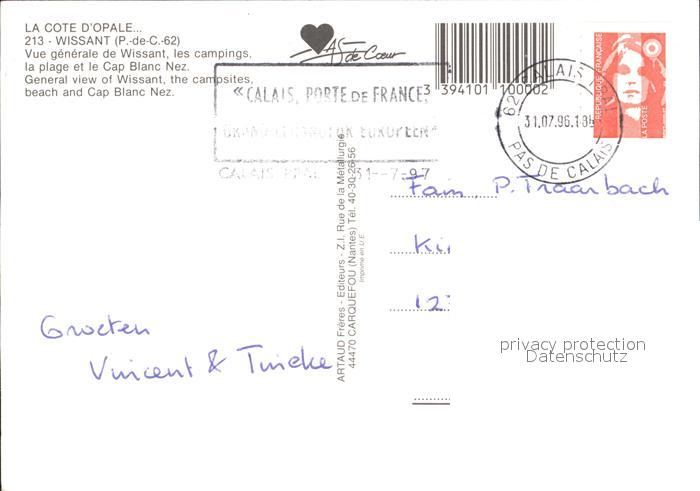 LA COTE D'OPALE...
213 - WISSANT (P.-de-C.-62)
Vue générale de Wissant, les campings,
la plage et le Cap Blanc Nez.
General view of Wissant, the campsites,
beach and Cap Blanc Nez.
AS de Cœur
3 394101 100002
"CALAIS, PORTE DE FRANCE,
CALAIS 31-7-97
62 CALAIS
31.07.96.18H
PAS DE CALAIS
REPUBLIQUE FRANÇAISE
LA POSTE
ARTAUD Frères - Editeurs - Z.I. Rue de la Métallurgie
44470 CARQUEFOU (Nantes) Tél. 40-30-26-56
Imprimé en U.E.
Fam. P. Traarbach
Ki
12
Groeten
Vincent & Tineke
privacy protection
Datenschutz